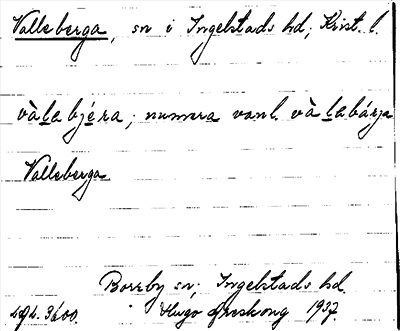 Valleberga, sn i Ingelstads hd; Krist. l.
vàlabjéra; numera vanl. vàlabárja
Valleberga
Borrby sn; Ingelstads hd
Hugo Areskoug 1937